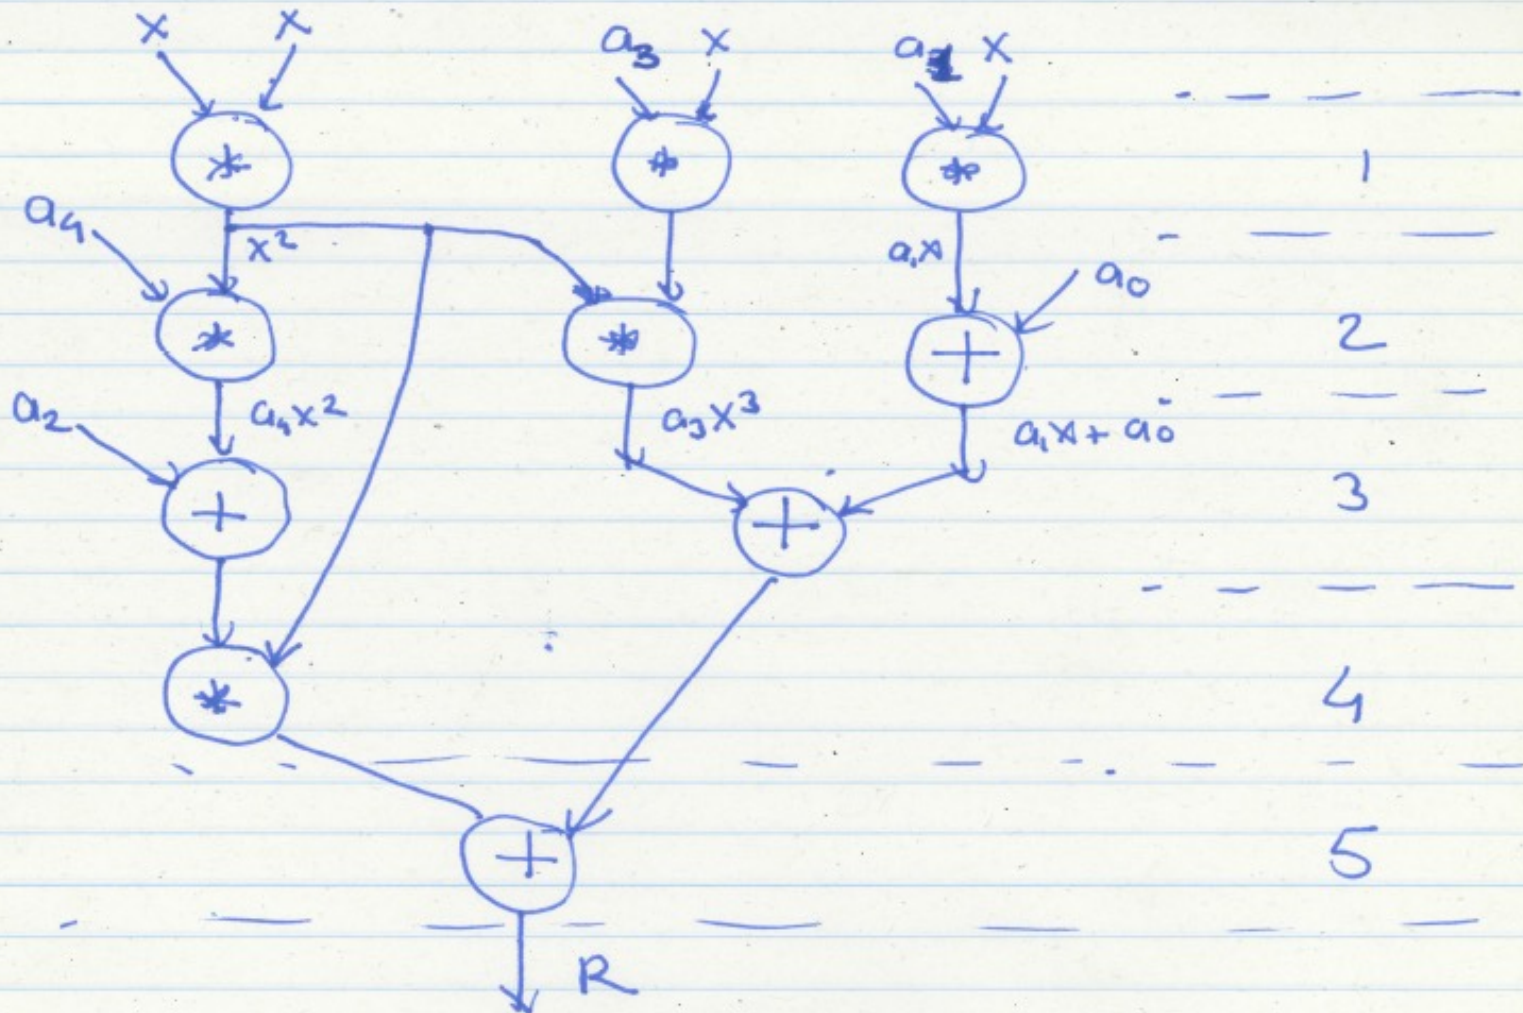 x x a₃ x a₁ x
* * * 1
a₄ x² a₁x a₀
* * + 2
a₂ a₄x² a₃x³ a₁x + a₀
+ + 3
* 4
+ 5
R